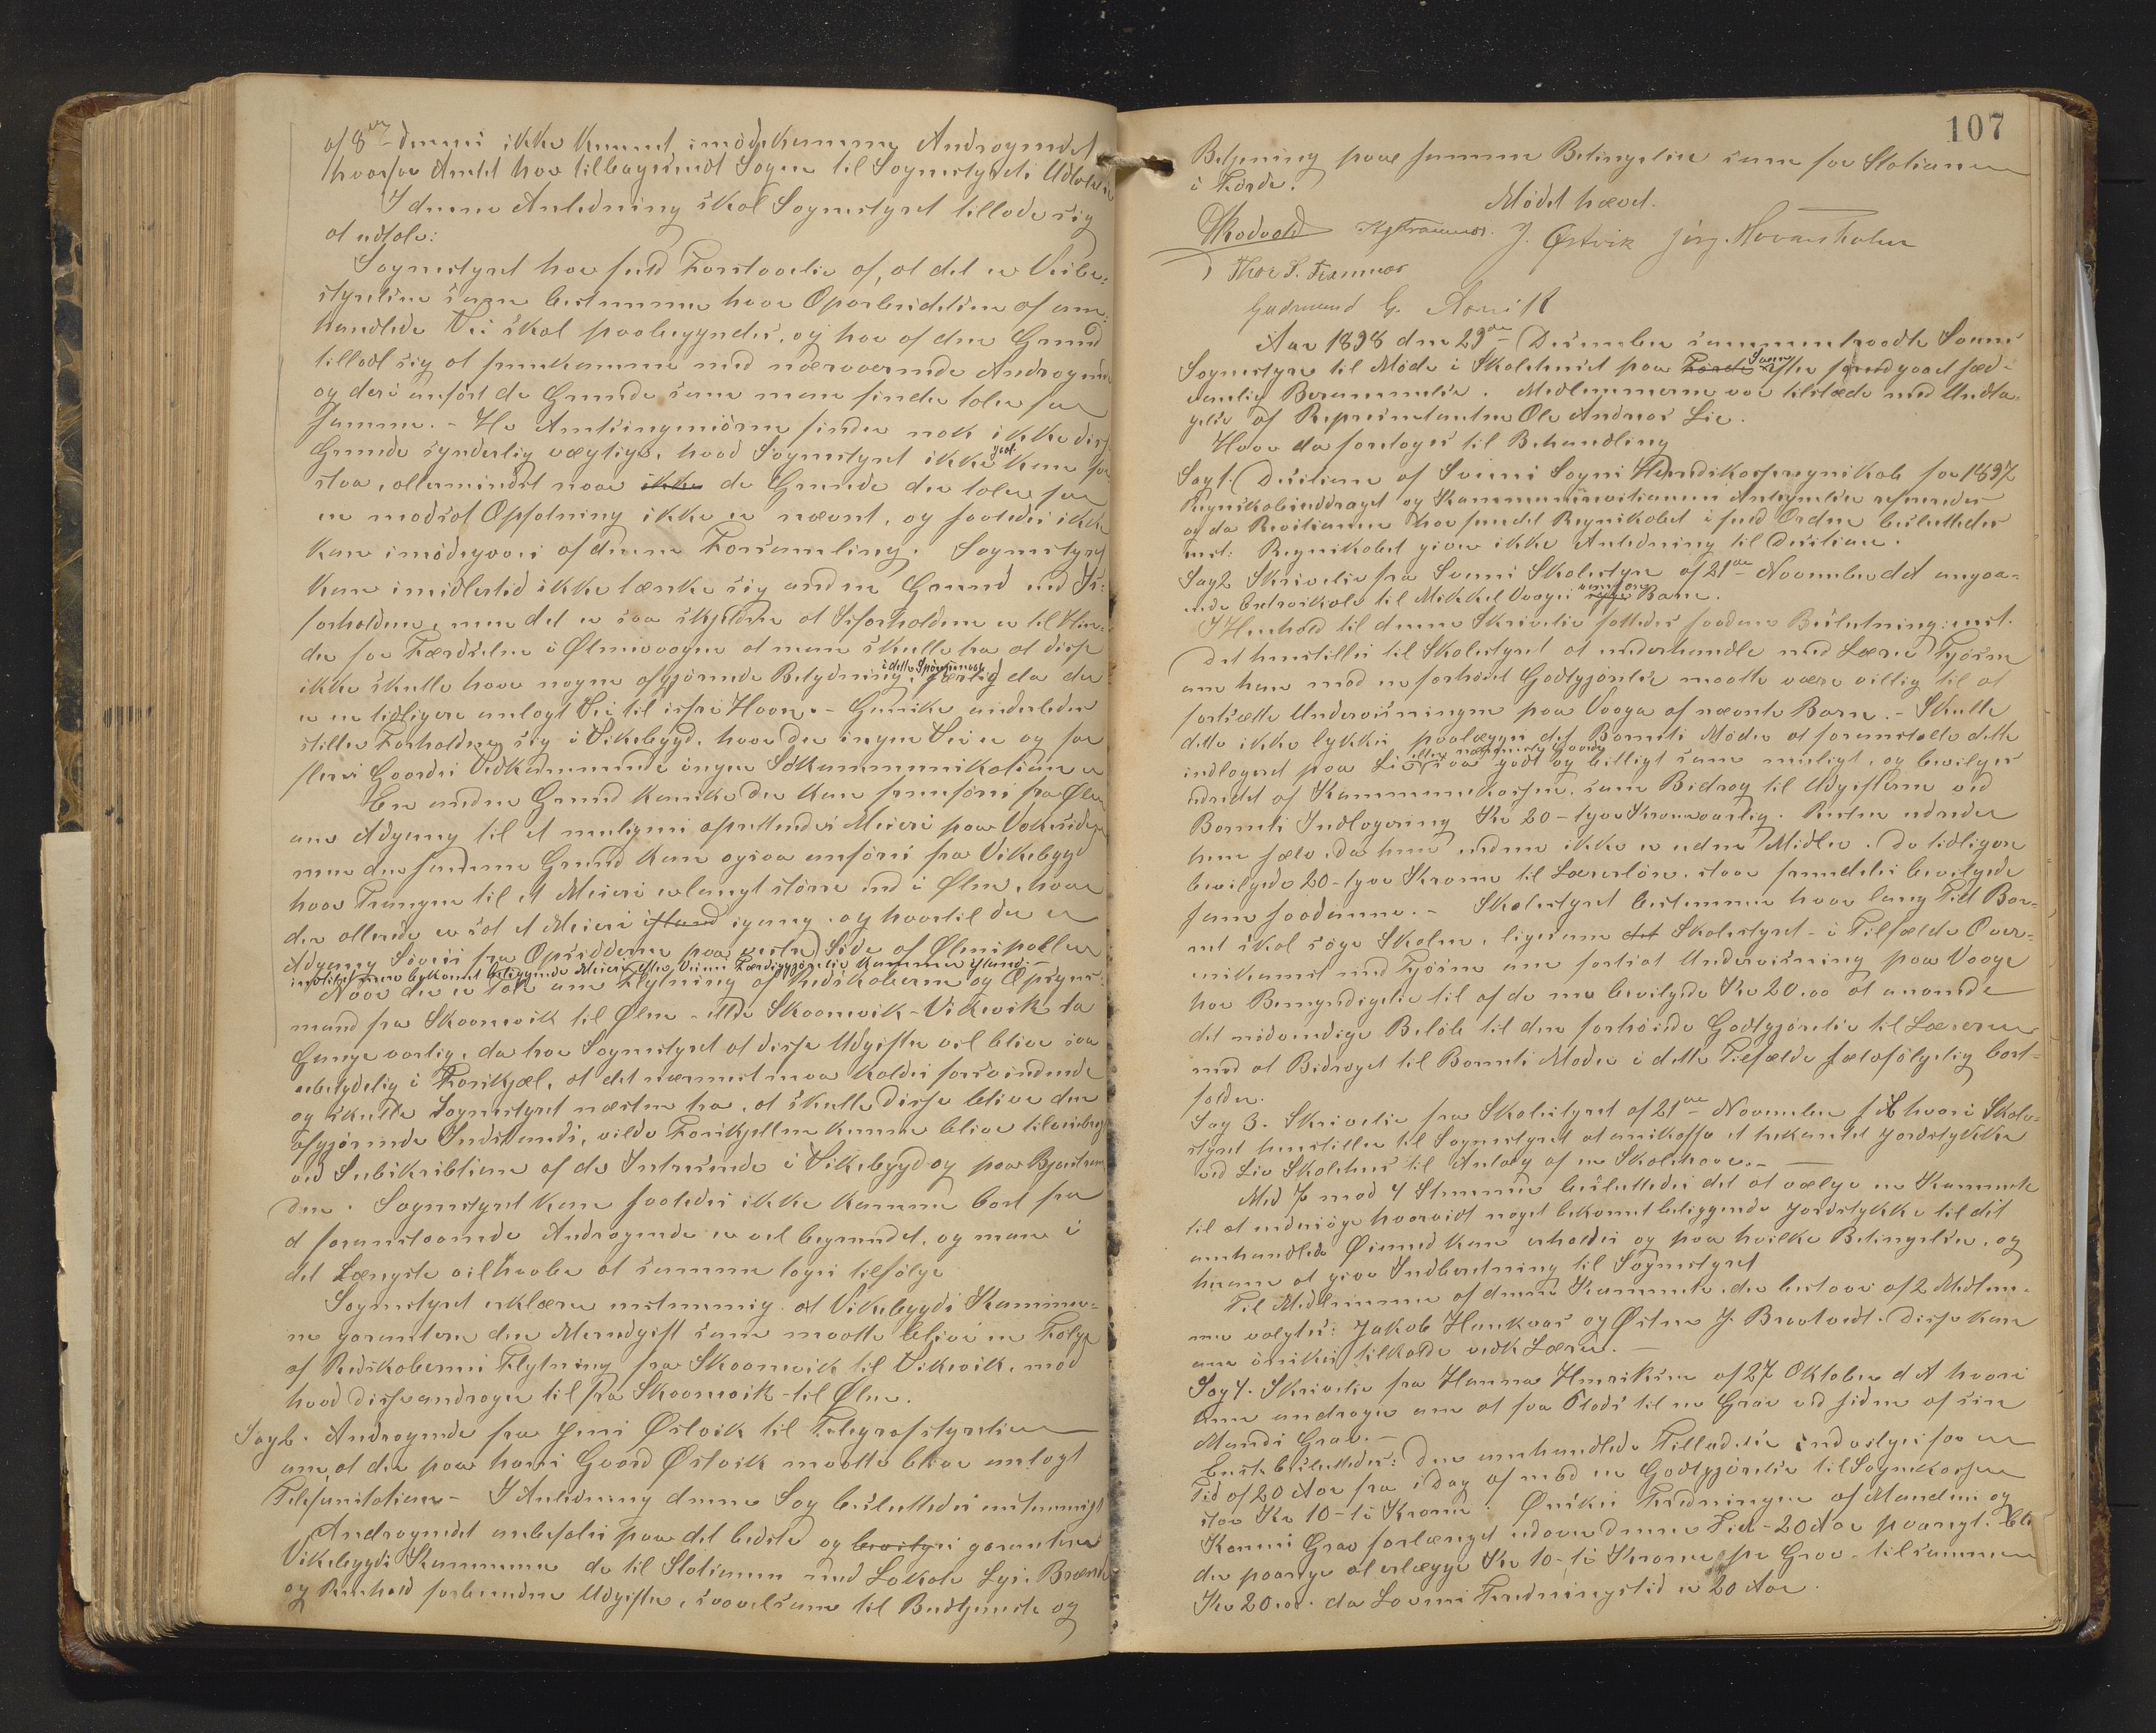 af 8de dennes ikke kunnet imödekomme Andragendet
hvorfor Amtet har tilbagesendt Sagen til Sognestyrets Udtalelse
I denne Anledning skal Sognestyret tillade sig
at udtale:
Sognestyret har fuld Forstaaelse af, at det er Veibe-
styrelsen som bestemmer hvor Oparbeidelsen af om-
handlede Vei skal paabegyndes, og har af den Grund
tilladt sig at fremkomme med nærværende Andragende
og deri anfört de Grunde som man finder taler for
samme. - Hr Amtsingeniören finder nok ikke disse
Grunde synderlig vægtige, hvad Sognestyret ikke godt kan for-
staa, allermindst naar ikke de Grunde der taler for
en modsat Opfatning ikke er nævnt, og saaledes ikke
kan imödegaaes af denne Forsamling. Sognestyret
kan imidlertid ikke tænke sig anden Grund end Is-
forholdene, men det er saa skjelden at Isforholdene er til Hin-
der for Færdselen i Ølensvaagen at man skulle tro at disse
ikke skulle have nogen afgjörende Betydning i dette Spörgsmaal, særlig da der
er en tidligere anlagt Vei til isfri Havn. - Ganske anderledes
stiller Forholdene sig i Vikebygd, hvor der ingen Vei er og for
flere Gaardes Vedkommende ingen Sökommunikation er
En anden Grund kanske der kan fremföres fra Ølen
om Adgang til et muligens oprettendes Meieri paa
men den samme Grund kan ogsaa anföres fra Vikebygd
hvor Trangen til et Meieri er langt större end i Ølen, hvor
der allerede er sat et Meieri istand igang. og hvortil der er
Adgang Söveis fra Opsidderne paa vestre Side af Ølensfjorden
imotsat men bekvemt beliggende Meieri efter Veiens Færdiggjörelse kunne istand. -
Naar der er tale om Flytning af Redskaberne og Opsyns-
mand fra Skaanevik til Ølen - eller Skaanevik - Vikevik to
Gange aarlig, da tror Sognestyret at disse Udgifter vil blive saa
ubetydelig i Forskjel, at det nærmest maa kaldes forsvindende
og skulle Sognestyret næsten tro, at skulle disse blive den
afgjörende Indstands, vilde Forskjellen kunne blive tilveiebragt
ved Subskribtion af de Interesserede i Vikebygd og paa
den. Sognestyret kan saaledes ikke komme bort fra
at foranstaaende Andragende er vel begrundet, og man i
det Længste vil haabe at samme tages tilfölge
Sognestyret erklærer enstemmig at Vikebygds Kommu-
ne garanterer den Merudgift som maatte blive en Fölge
af Redskabernes Flytning fra Skaanevik til Vikevik, mod
hvad disse andrager til fra Skaanevik - til Ølen.
Sag 6. Andragende fra Jens Østvik til Telegrafstyrelsen
om, at der paa hans Gaard Østvik maatte blive anlagt
Telefonstation - I Anledning denne Sag besluttedes enstemmigt
Andragendet anbefales paa det bedste og bevilges garanterer
Vikebygds Kommune de til Stationen med Lokale Lys, Brænde
og Renhold forbundne Udgifter, saavelsom til Budtjeneste og
107
Betjening paa samme Betingelse som for Stationen
i Förde.
Mödet hævet.
J. Østvik
Thore S. Framnæs
Gudmund G.
Aar 1898 den 29de December sammentraadte Søvnes
Sognestyre til Möde i Skolehuset paa Förde Søvne efter forudgaaet sæd-
vanlig Berammelse. Medlemmerne var tilstæde med Undta-
gelse af Repræsentanten Ole Andreas Lie.
Hvor da foretoges til Behandling
Sag 1. Desition af Søvnes Sogns Herredskasseregnskab for 1897
Regnskabsuddraget og Kommunerevisionens Antegnelser refereredes
og da Revisionen har fundet Regnskabet i fuld Orden besluttedes
enst: Regnskabet giver ikke Anledning til Desition.
Sag 2 Skrivelse fra Søvnes Skolestyre af 21de November dA angaa-
ende Extraskole til Mikkel Vaages Barn.
I Henhold til denne Skrivelse fattedes saadan Beslutning: enst.
Det henstilles til Skolestyret at underhandle med Lærer
om han mod en forhöiet Godtgjörelse maatte være villig til at
fortsætte Undervisningen paa Vaage af nævnte Barn. - Skulle
dette ikke lykkes paalægges det Barnets Moder at foranstalte dette
indlogeret paa Lie eller nærmeste Gaard saa godt og billigt som muligt, og bevilges
udredet af Kommunekassen som Bidrag til Udgifterne ved
Barnets Indlogering Kr 20 - tyve Kroner aarlig. Resten udreder
hun selv, da hun endnu ikke er uden Midler. De tidligere
bevilgede 20 - tyve Kroner til Lærerlön, staar fremdeles bevilgede
som saadanne. - Skolestyret bestemmer hvor lang Tid Bar-
net skal söge Skolen, ligesom det Skolestyret - i Tilfælde Over-
enskomst med om fortsat Undervisning paa Vaage
har Bemyndigelse til af de nu bevilgede Kr 20.00 at anvende
det nödvendige Belöb til den forhöiede Godtgjörelse til Læreren
mod at Bidraget til Barnets Moder i dette Tilfælde selvfölgelig bort-
falder.
Sag 3. Skrivelse fra Skolestyret af 21de November hvori Skole-
styret henstiller til Sognestyret at anskaffe et trekantet Jordstykke
ved Lie Skolehus til Anlæg af en Skolehave. -
Med 7 mod 4 Stemmer besluttedes det at vælge en Komite
til at undersöge hvorvidt noget bekvemt beliggende Jordstykke til det
omhandlede Øiemed kan erholdes og paa hvilke Betingelser, og
herom at give Indberetning til Sognestyret
Til Medlemmer af denne Komite, der bestaar af 2 Medlem-
mer valgtes: Jakob Haukaas og Østen J. Braatveit. Disse kan
om önskes tilkalde vedk Lærer. -
Sag 4. Skrivelse fra Hanna Henriksen af 27 Oktober dA hvori
hun andrager om at faa Plads til en Grav ved Siden af sin
Mands Grav. -
Enst. besluttedes: Den omhandlede Tilladelse indvilges for en
Tid af 20 Aar fra idag af mod en Godtgjörelse til Sognekassen
stor Kr 10 - ti Kroner. Ønskes Fredningen af Mandens og
Konens Grav forlænget udover denne Tid - 20 Aar paanyt. bli
der paanye at erlægge Kr 10 - ti Kroner pr Grav - tilsammen
Kr 20.00. da Lovens Fredningstid er 20 Aar.